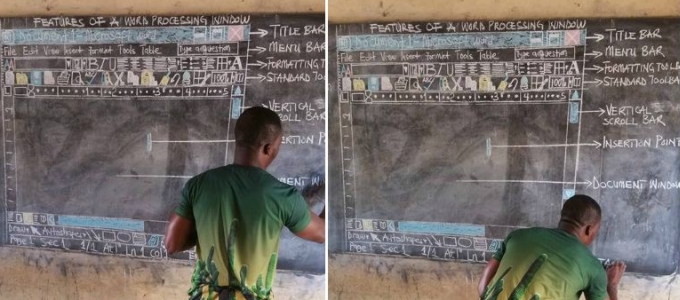 FEATURES OF A WORD PROCESSING WINDOW
Document 1 - Microsoft Word
File Edit View Insert format Tools Table
Type a question
B I U
A
100%
TITLE BAR
MENU BAR
FORMATTING TO
STANDARD TOOLB
VERTICAL
SCROLL BAR
INSERTION POIN
DOCUMENT W
Draw Autoshapes
Page 1 Sec 1 1/1 At 1" Ln 1
FEATURES OF A WORD PROCESSING WINDOW
Document 1 - Microsoft Word
File Edit View Insert format Tools Table
Type a question
B I U
A
100%
TITLE BAR
MENU BAR
FORMATTING T
STANDARD TOOLBA
VERTICAL
SCROLL BAR
INSERTION POINT
DOCUMENT WINDOW
Draw Autoshapes
Page 1 Sec 1 1/1 At 1" Ln 1
STA